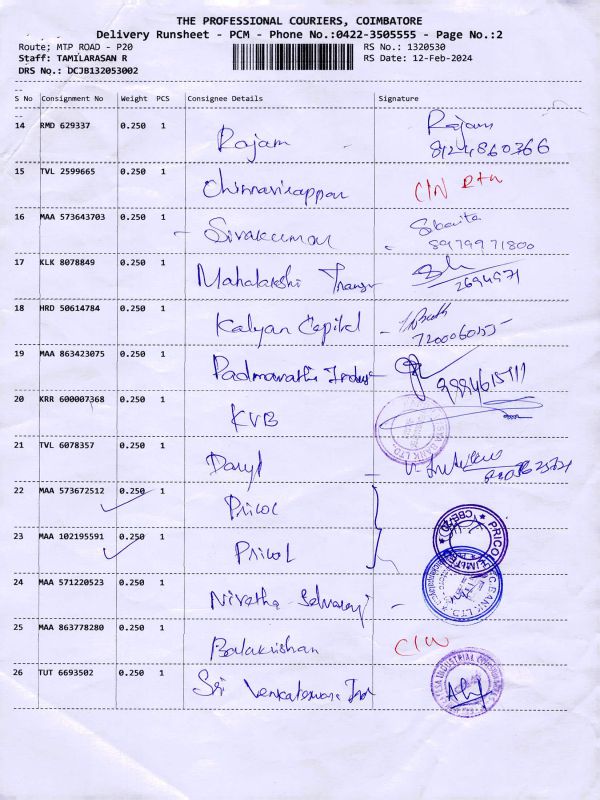 THE PROFESSIONAL COURIERS, COIMBATORE
Delivery Runsheet - PCM - Phone No.:0422-3505555 - Page No.:2
Route; MTP ROAD - P20 RS No.: 1320530
Staff: TAMILARASAN R RS Date: 12-Feb-2024
DRS No.: DCJB132053002
S No Consignment No Weight PCS Consignee Details Signature
14 RMD 629337 0.250 1 Rajam Rajam
8124860366
15 TVL 2599665 0.250 1 Chinnavirappan C/N RTN
16 MAA 573643703 0.250 1 - Sivakumar
8979971800
17 KLK 8078849 0.250 1 Mahalakshi
2694971
18 HRD 50614784 0.250 1 Kalyan Capital -
19 MAA 863423075 0.250 1 Padmavathi Indus
20 KRR 600007368 0.250 1 KVB
BANK LTD.
21 TVL 6078357 0.250 1 Daryl
22 MAA 573672512 0.250 1 Pricol
PRICOL LIMITED
23 MAA 102195591 0.250 1 Pricol
24 MAA 571220523 0.250 1 Nivetha Selvaraj -
BANK LTD.
25 MAA 863778280 0.250 1 Balakrishan C/N
26 TUT 6693502 0.250 1 Sri Venkateswara Ind
INDUSTRIAL